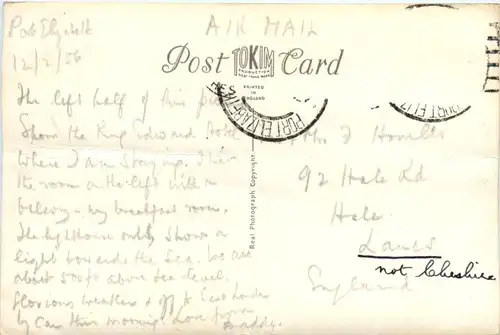 Port Elizabeth
12/2/56
AIR MAIL
Post TOKIM Card
PRODUCTION
PRINTED IN ENGLAND
Real Photograph Copyright.
PORT ELIZABETH
PORT ELIZ
The left half of this
Shows the King Edward Hotel
Where I am Staying. I have
the room on the left with a
balcony - my breakfast room.
The lighthouse only shows a
light towards the Sea. We are
about 500ft above sea level.
Glorious weather & off to East London
by Car this morning. Love from
Daddy.
92 Hale Rd
Hale
Lancs
not Cheshire
England